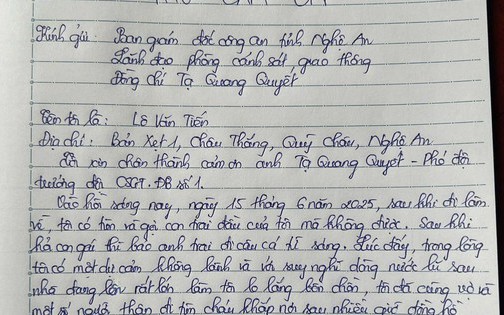 Kính gửi: Ban giám đốc công an tỉnh Nghệ An
Lãnh đạo phòng cảnh sát giao thông
Đồng chí Tạ Quang Quyết
Tên tôi là: Lê Văn Tiến
Địa chỉ: Bản Xẹt 1, Châu Thắng, Quỳ Châu, Nghệ An
xin chân thành cảm ơn anh Tạ Quang Quyết - Phó đội
trưởng đội CSGT-ĐB số 1.
Vào hồi sáng nay, ngày 15 tháng 6 năm 2025, sau khi đi làm
về, tôi có tìm và gọi con trai đầu của tôi mà không được. Sau khi
hỏi con gái thì bảo anh trai đi câu cá từ sáng. Lúc đấy, trong lòng
tôi có một dự cảm không lành và với suy nghĩ dòng nước lũ sau
nhà đang lớn rất lớn làm tôi lo lắng bồn chồn, tôi đã cùng vợ và
một số người thân đi tìm cháu khắp nơi sau nhiều giờ đồng hồ